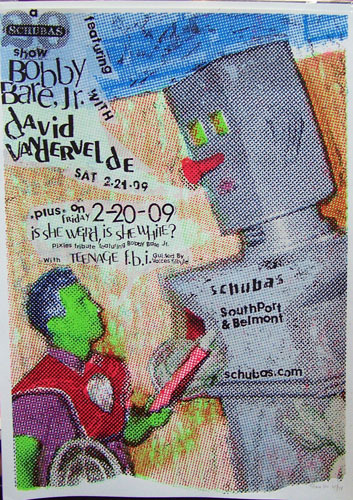 a
SCHUBAS
show
featuring
Bobby
Bare, Jr.
WITH
david
VANDERVELDE
SAT 2-21-09
.plus; on
FRIDAY 2-20-09
is she weird is she white?
pixies tribute featuring Bobby Bare Jr.
with TEENAGE f.b.i.
Guided By
Voices tribute
schubas
SouthPort
& Belmont
schubas.com